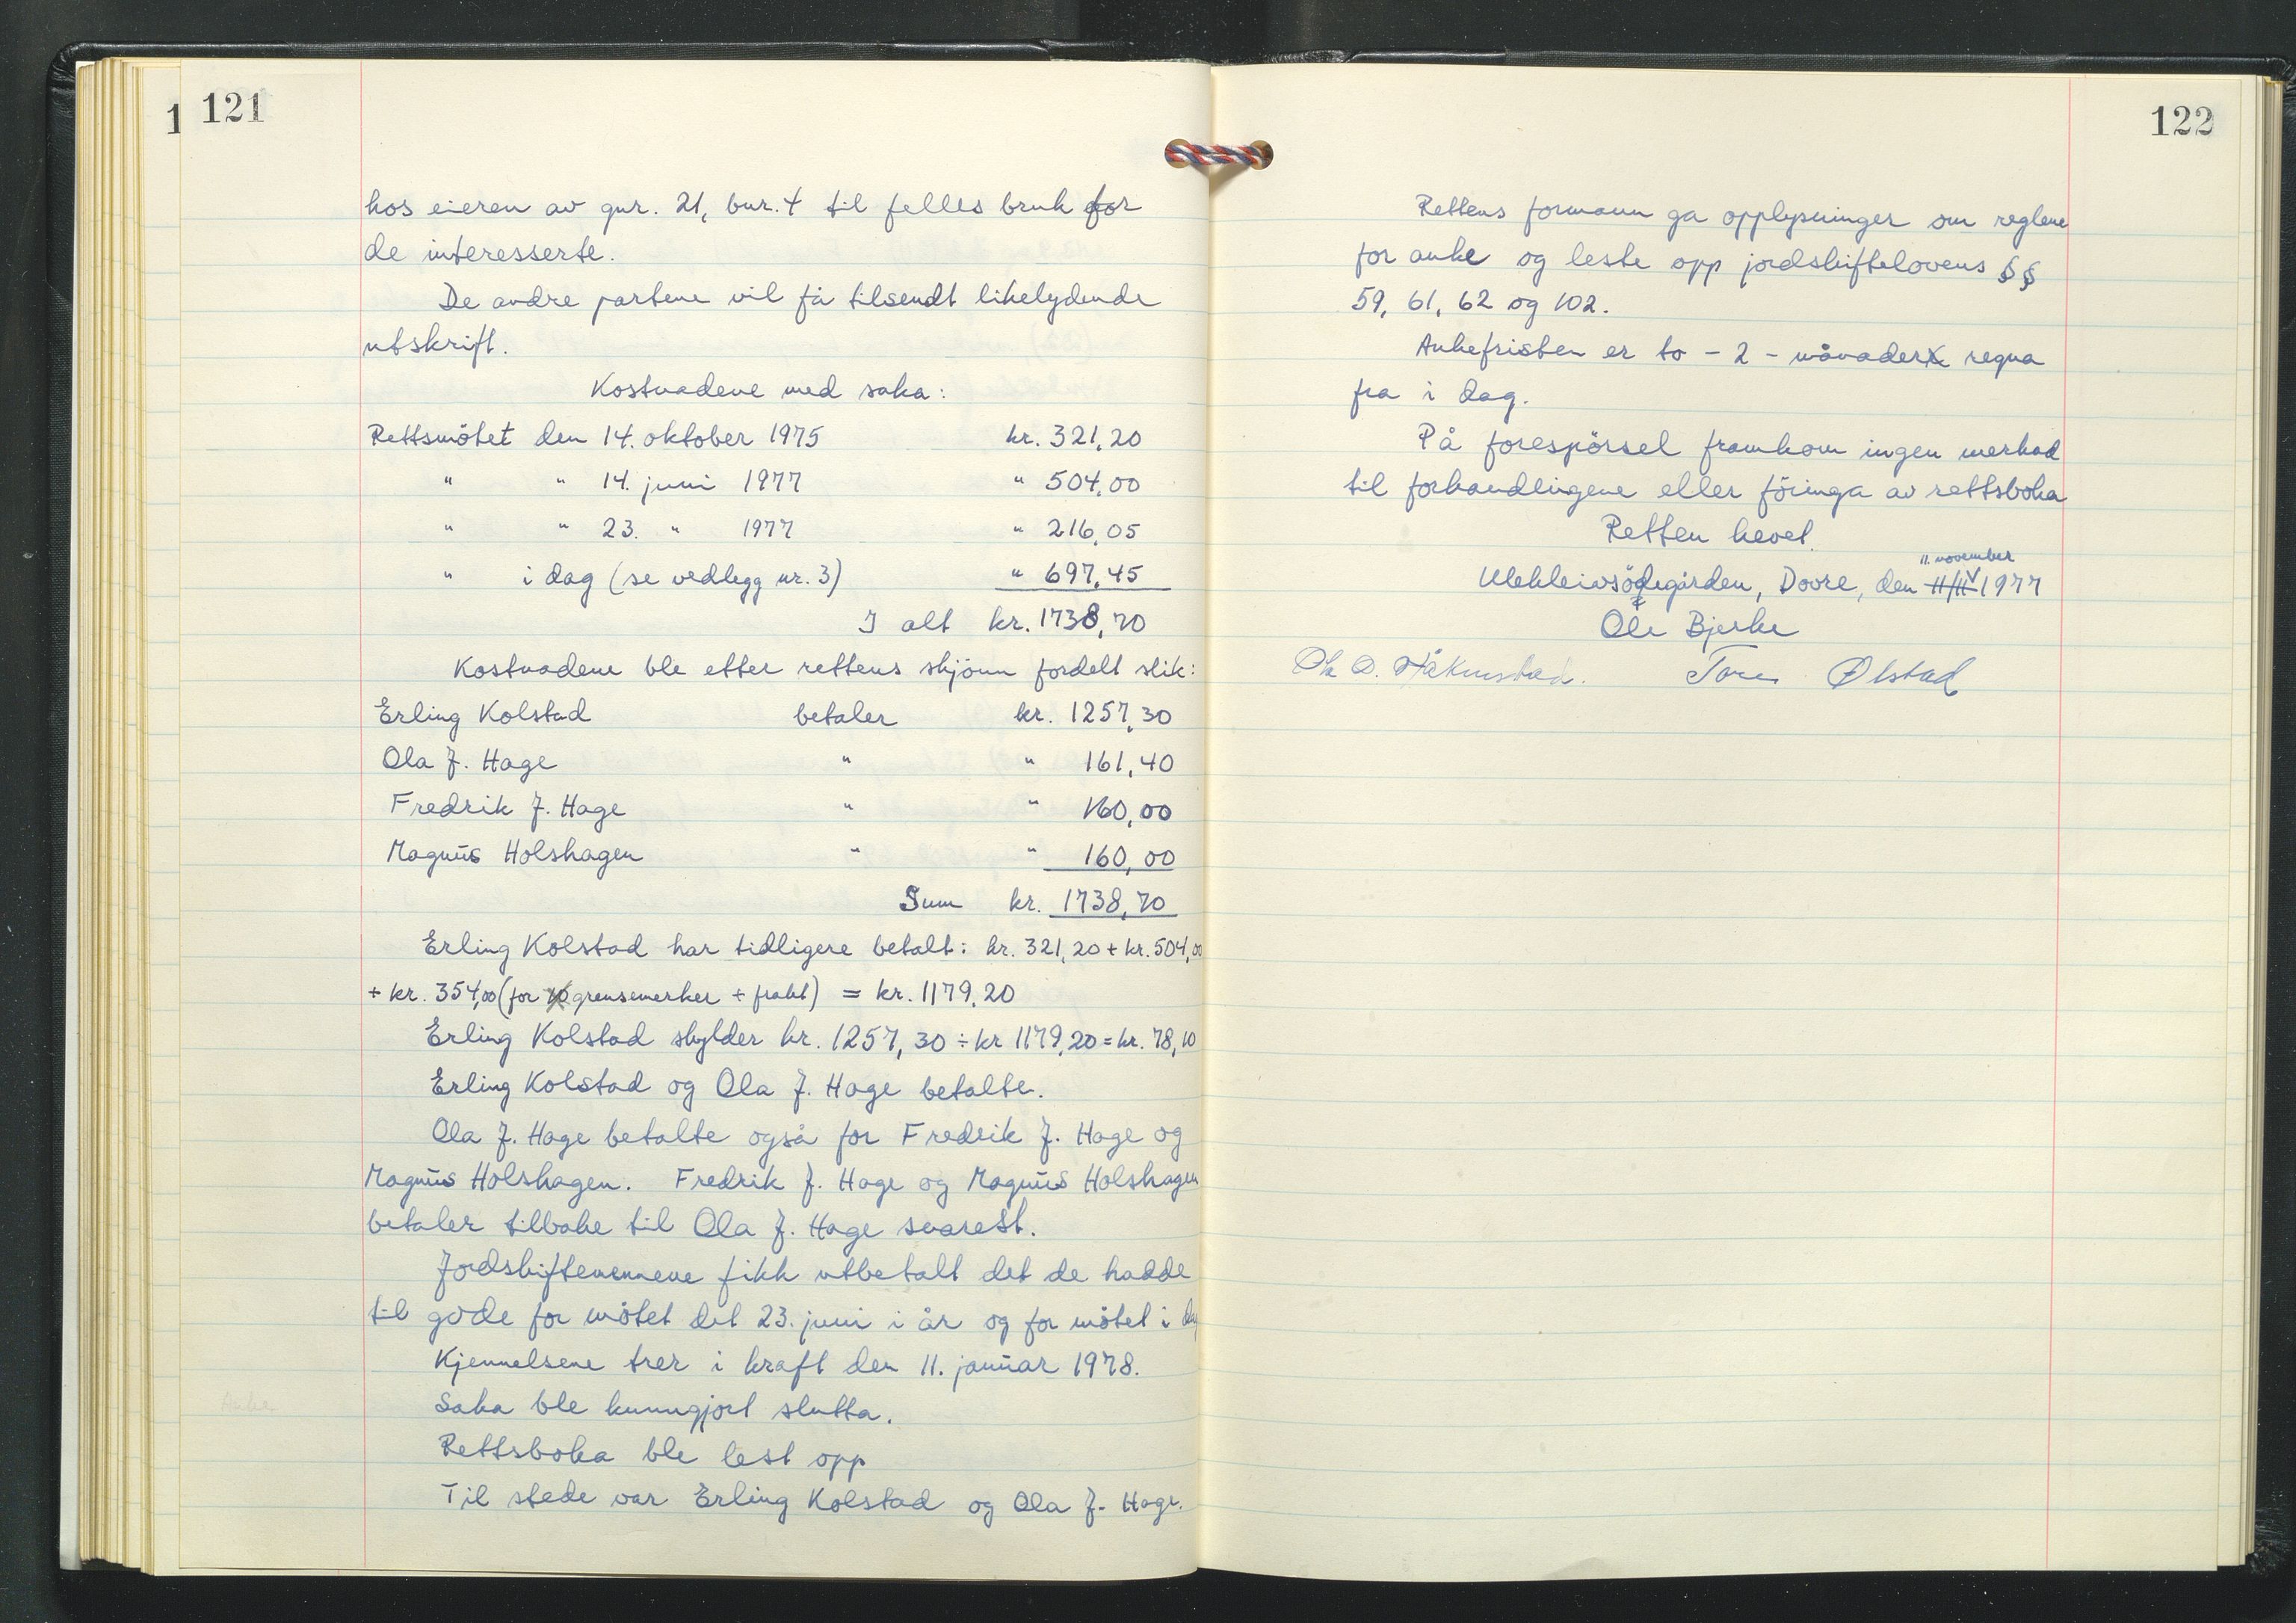 1 121
hos eieren av gnr. 21, bnr. 4 til felles bruk for
de interesserte.
De andre partene vil få tilsendt likelydende
utskrift.
Kostnadene med saka:
Rettsmötet den 14. oktober 1975 kr. 321,20
" " 14. juni 1977 " 504,00
" " 23. " 1977 " 216,05
" i dag (se vedlegg nr. 3) " 697,45
I alt kr. 1738,70
Kostnadene ble etter rettens skjönn fordelt slik:
Erling Kolstad betaler kr. 1257,30
Ola J. Hage " " 161,40
Fredrik J. Hage " " 160,00
Magnus Holshagen " " 160,00
Sum kr. 1738,70
Erling Kolstad har tidligere betalt: kr. 321,20 + kr. 504,00
+ kr. 354,00 (for grensemerker + frakt) = kr. 1179,20
Erling Kolstad skylder kr. 1257,30 ÷ kr 1179,20 = kr. 78,10
Erling Kolstad og Ola J. Hage betalte.
Ola J. Hage betalte også for Fredrik J. Hage og
Magnus Holshagen. Fredrik J. Hage og Magnus Holshagen
betaler tilbake til Ola J. Hage snarest.
Jordskiftemennene fikk utbetalt det de hadde
til gode for mötet det 23. juni i år og for mötet i dag
Kjennelsene trer i kraft den 11. januar 1978.
Saka ble kunngjort slutta.
Anke
Rettsboka ble lest opp
Til stede var Erling Kolstad og Ola J. Hage.
122
Rettens formann ga opplysninger om reglene
for anke og leste opp jordskiftelovens §§
59, 61, 62 og 102.
Ankefristen er to - 2 - månader regna
fra i dag.
På forespörsel framkom ingen merknad
til forhandlingene eller föringa av rettsboka
Retten hevet.
11. november
Dovre, den 1977
Ole Bjerke
Tore Ølstad